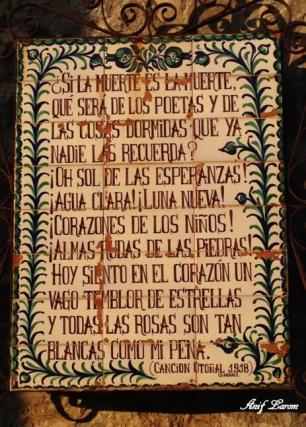 ¿SI LA MUERTE ES LA MUERTE,
QUE SERA DE LOS POETAS Y DE
LAS COSAS DORMIDAS QUE YA
NADIE LAS RECUERDA?
¡OH SOL DE LAS ESPERANZAS!
¡AGUA CLARA! ¡LUNA NUEVA!
¡CORAZONES DE LOS NIÑOS!
¡ALMAS RUDAS DE LAS PIEDRAS!
HOY SIENTO EN EL CORAZÓN UN
VAGO TEMBLOR DE ESTRELLAS
Y TODAS LAS ROSAS SON TAN
BLANCAS COMO MI PENA.
(CANCION OTOÑAL 1918)
Anif Larom